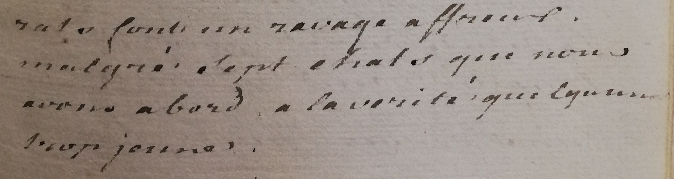 rats font un ravage affreux.
malgré Sept chats que nous
avons abord, a la verité quelques uns
trop jeunes.